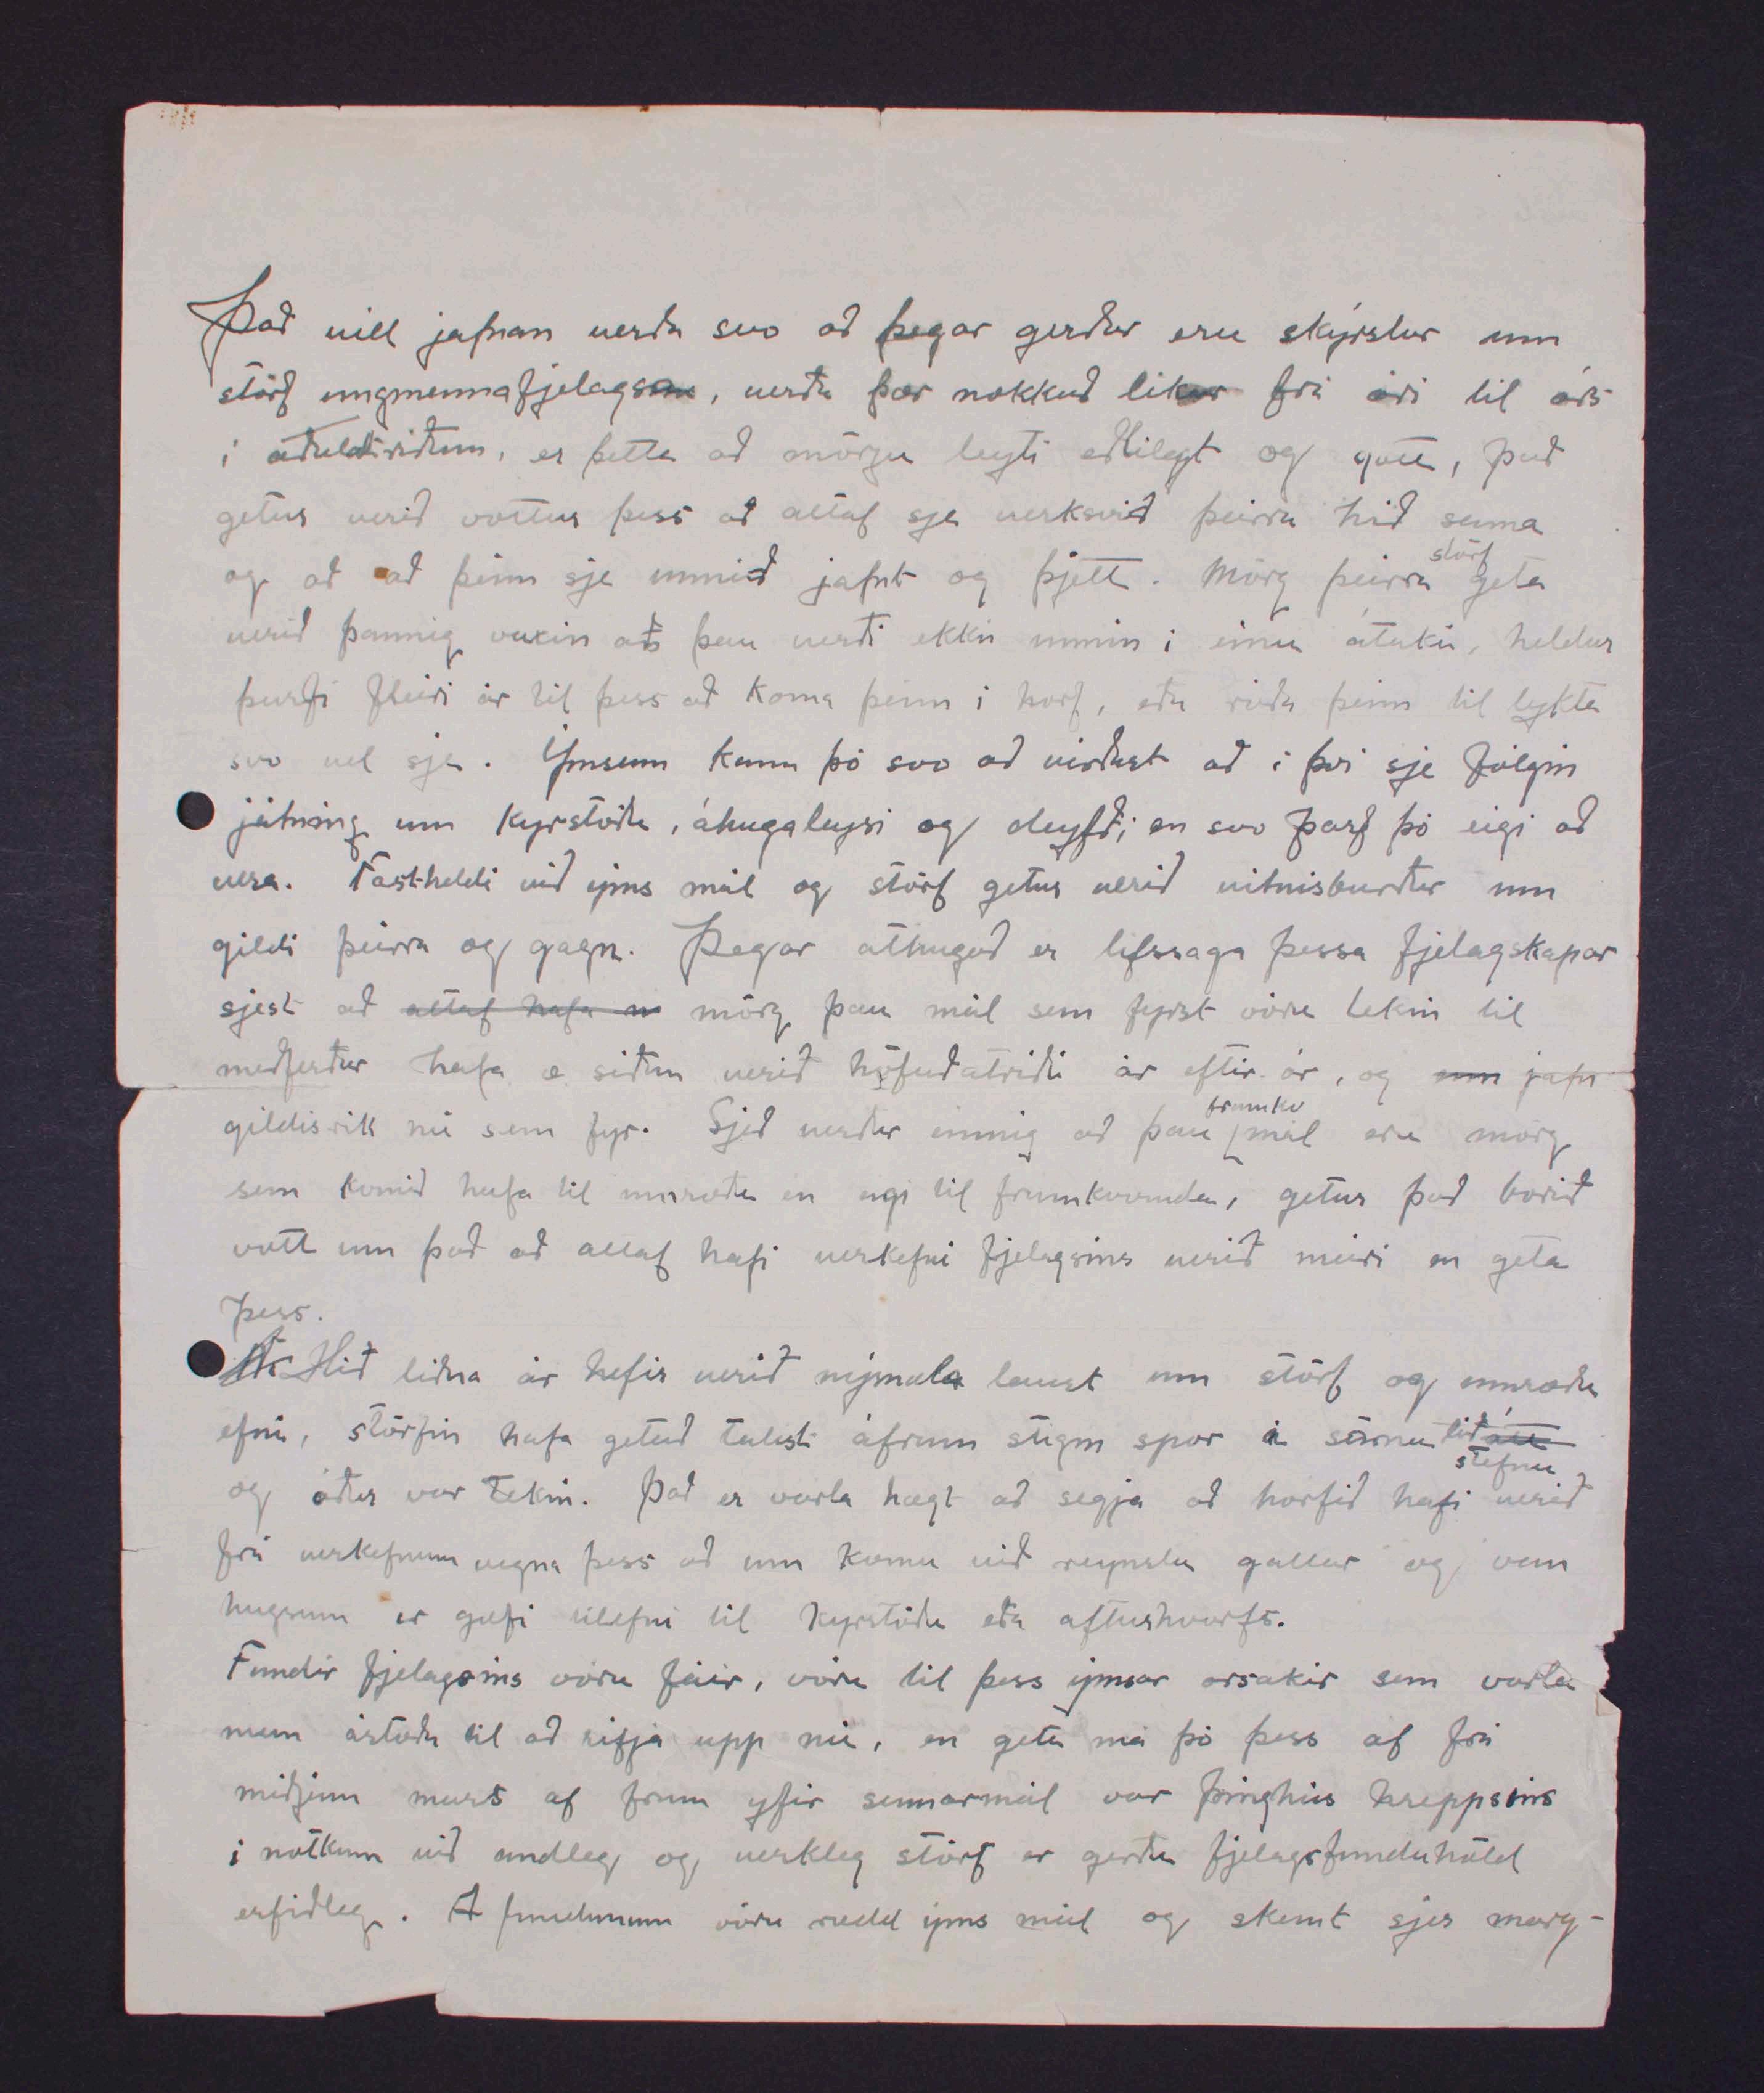 Það vill jafnan verða svo að þegar gerðar eru skýrslur um
störf ungmennafjelagsins, verða þær nokkuð líkar frá ári til árs
í aðaldráttum, er þetta að mörgu leyti eðlilegt og gott, það
getur verið vottur þess að altaf sje verksvið þeirra hið sama
og að að þeim sje unnið jafnt og þjett. Mörg þeirra störf geta
verið þannig vaxin að þau verði ekki unnin í einu átaki, heldur
þurfi fleiri ár til þess að koma þeim í horf, eða ráða þeim til lykta
svo vel sje. Ýmsum kann þó svo að virðast að í því sje fólgin
játning um kyrstöðu, áhugaleysi og deyfð; en svo þarf þó eigi að
vera. Fastheldi við ýms mál og störf getur verið vitnisburður um
gildi þeirra og gagn. Þegar athuguð er lífssaga þessa fjelagskapar
sjest að altaf hafa m mörg þau mál sem fyrst vóru tekin til
meðferðar hafa æ síðan verið höfuðatriði ár eftir ár, og enn jafn
gildisrík nú sem fyr. Sjeð verður einnig að þau framkv mál eru mörg
sem komið hafa til umræðu en eigi til framkvæmda, getur það borið
vott um það að altaf hafi verkefni fjelagsins verið meiri en geta
þess.
Hið liðna ár hefir verið nýmæla laust um störf og umræðu
efni, störfin hafa getað talist áfram stigin spor í sömu átt stefnu
og áður var tekin. Það er varla hægt að segja að horfið hafi verið
frá verkefnum vegna þess að um komu við reynslu gallar og van
hugsum er gæfi tilefni til kyrstöðu eða afturhvarfs.
Fundir fjelagsins vóru fáir, vóru til þess ýmsar orsakir sem varla
mun ástæða til að rifja upp nú, en geta má þó þess af frá
miðjum mars af fram yfir sumarmál var þinghús hreppsins
í notkun við andleg og verkleg störf er gerðu fjelagsfunduhöld
erfiðleg. Á fundunum vóru rædd ýms mál og skemt sjer marg-